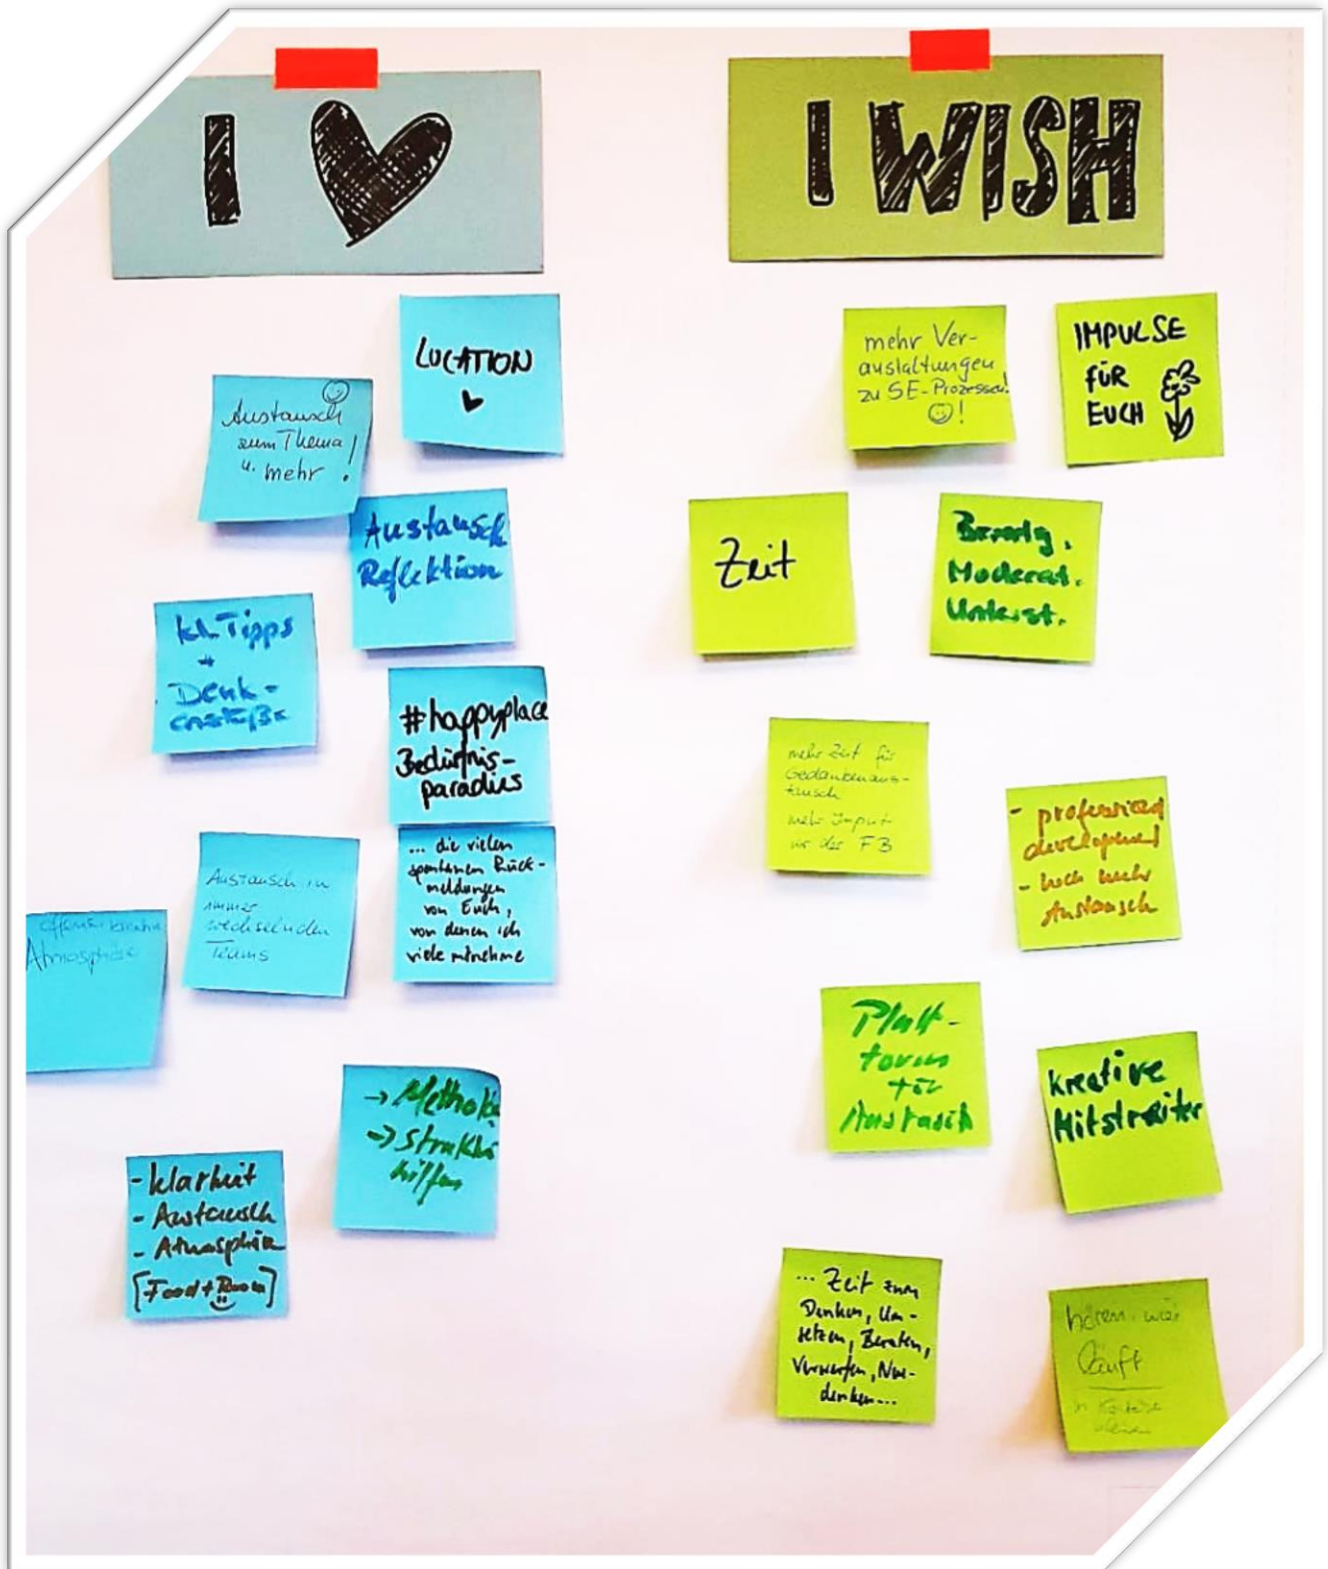 I
I WISH
LOCATION
Austausch
zum Thema!
u. mehr
Austausch
Reflektion
kl. Tipps
+
Denk-
anstöße
#happyplace
Bedürfnis-
paradies
... die vielen
spontanen Rück-
meldungen
von Euch,
von denen ich
viele mitnehme
Austausch in
immer
wechselnden
Teams
Atmosphäre
→ Methode
→ Struktur
hilfen
- Klarheit
- Austausch
- Atmosphäre
[Food + Room]
mehr Ver-
anstaltungen
zu SE-Prozessen!
!
IMPULSE
FÜR
EUCH
Zeit
Moderat.
Unterst.
mehr Zeit für
Gedankenaus-
tausch
mehr Input
in der FB
- professional
development
- noch mehr
Austausch
Platt-
form
für
Austausch
kreative
Mitstreiter
... Zeit zum
Denken, Um-
setzen, Beraten,
Verwerfen, Neu-
denken...
hören, wie
läuft
in